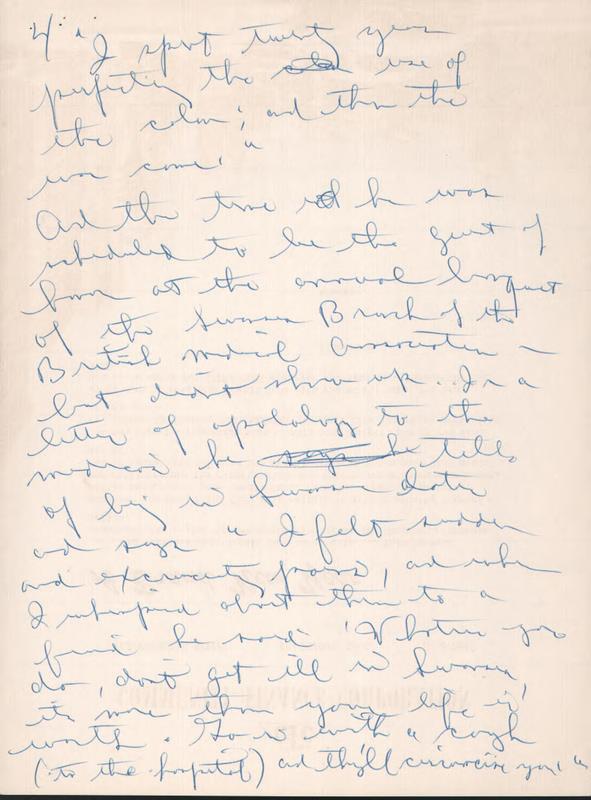 4. "I spent twenty years
perfecting the use of
the colon; and then the
war came."
And the time he was
scheduled to be the guest of
honor at the annual banquet
of the Swansea Branch of the
British Medical Association —
but didn't show up. In a
letter of apology to the
medicos he he tells
of being in Swansea later
and says "I felt sudden
and excruciating pains, and when
I whimpered about them to a
friend he said: 'Whatever you
do, don't get ill in Swansea,
it's more than your life is
worth. Go in with a cough
(to the hospital) and they'll circumcise you.'"